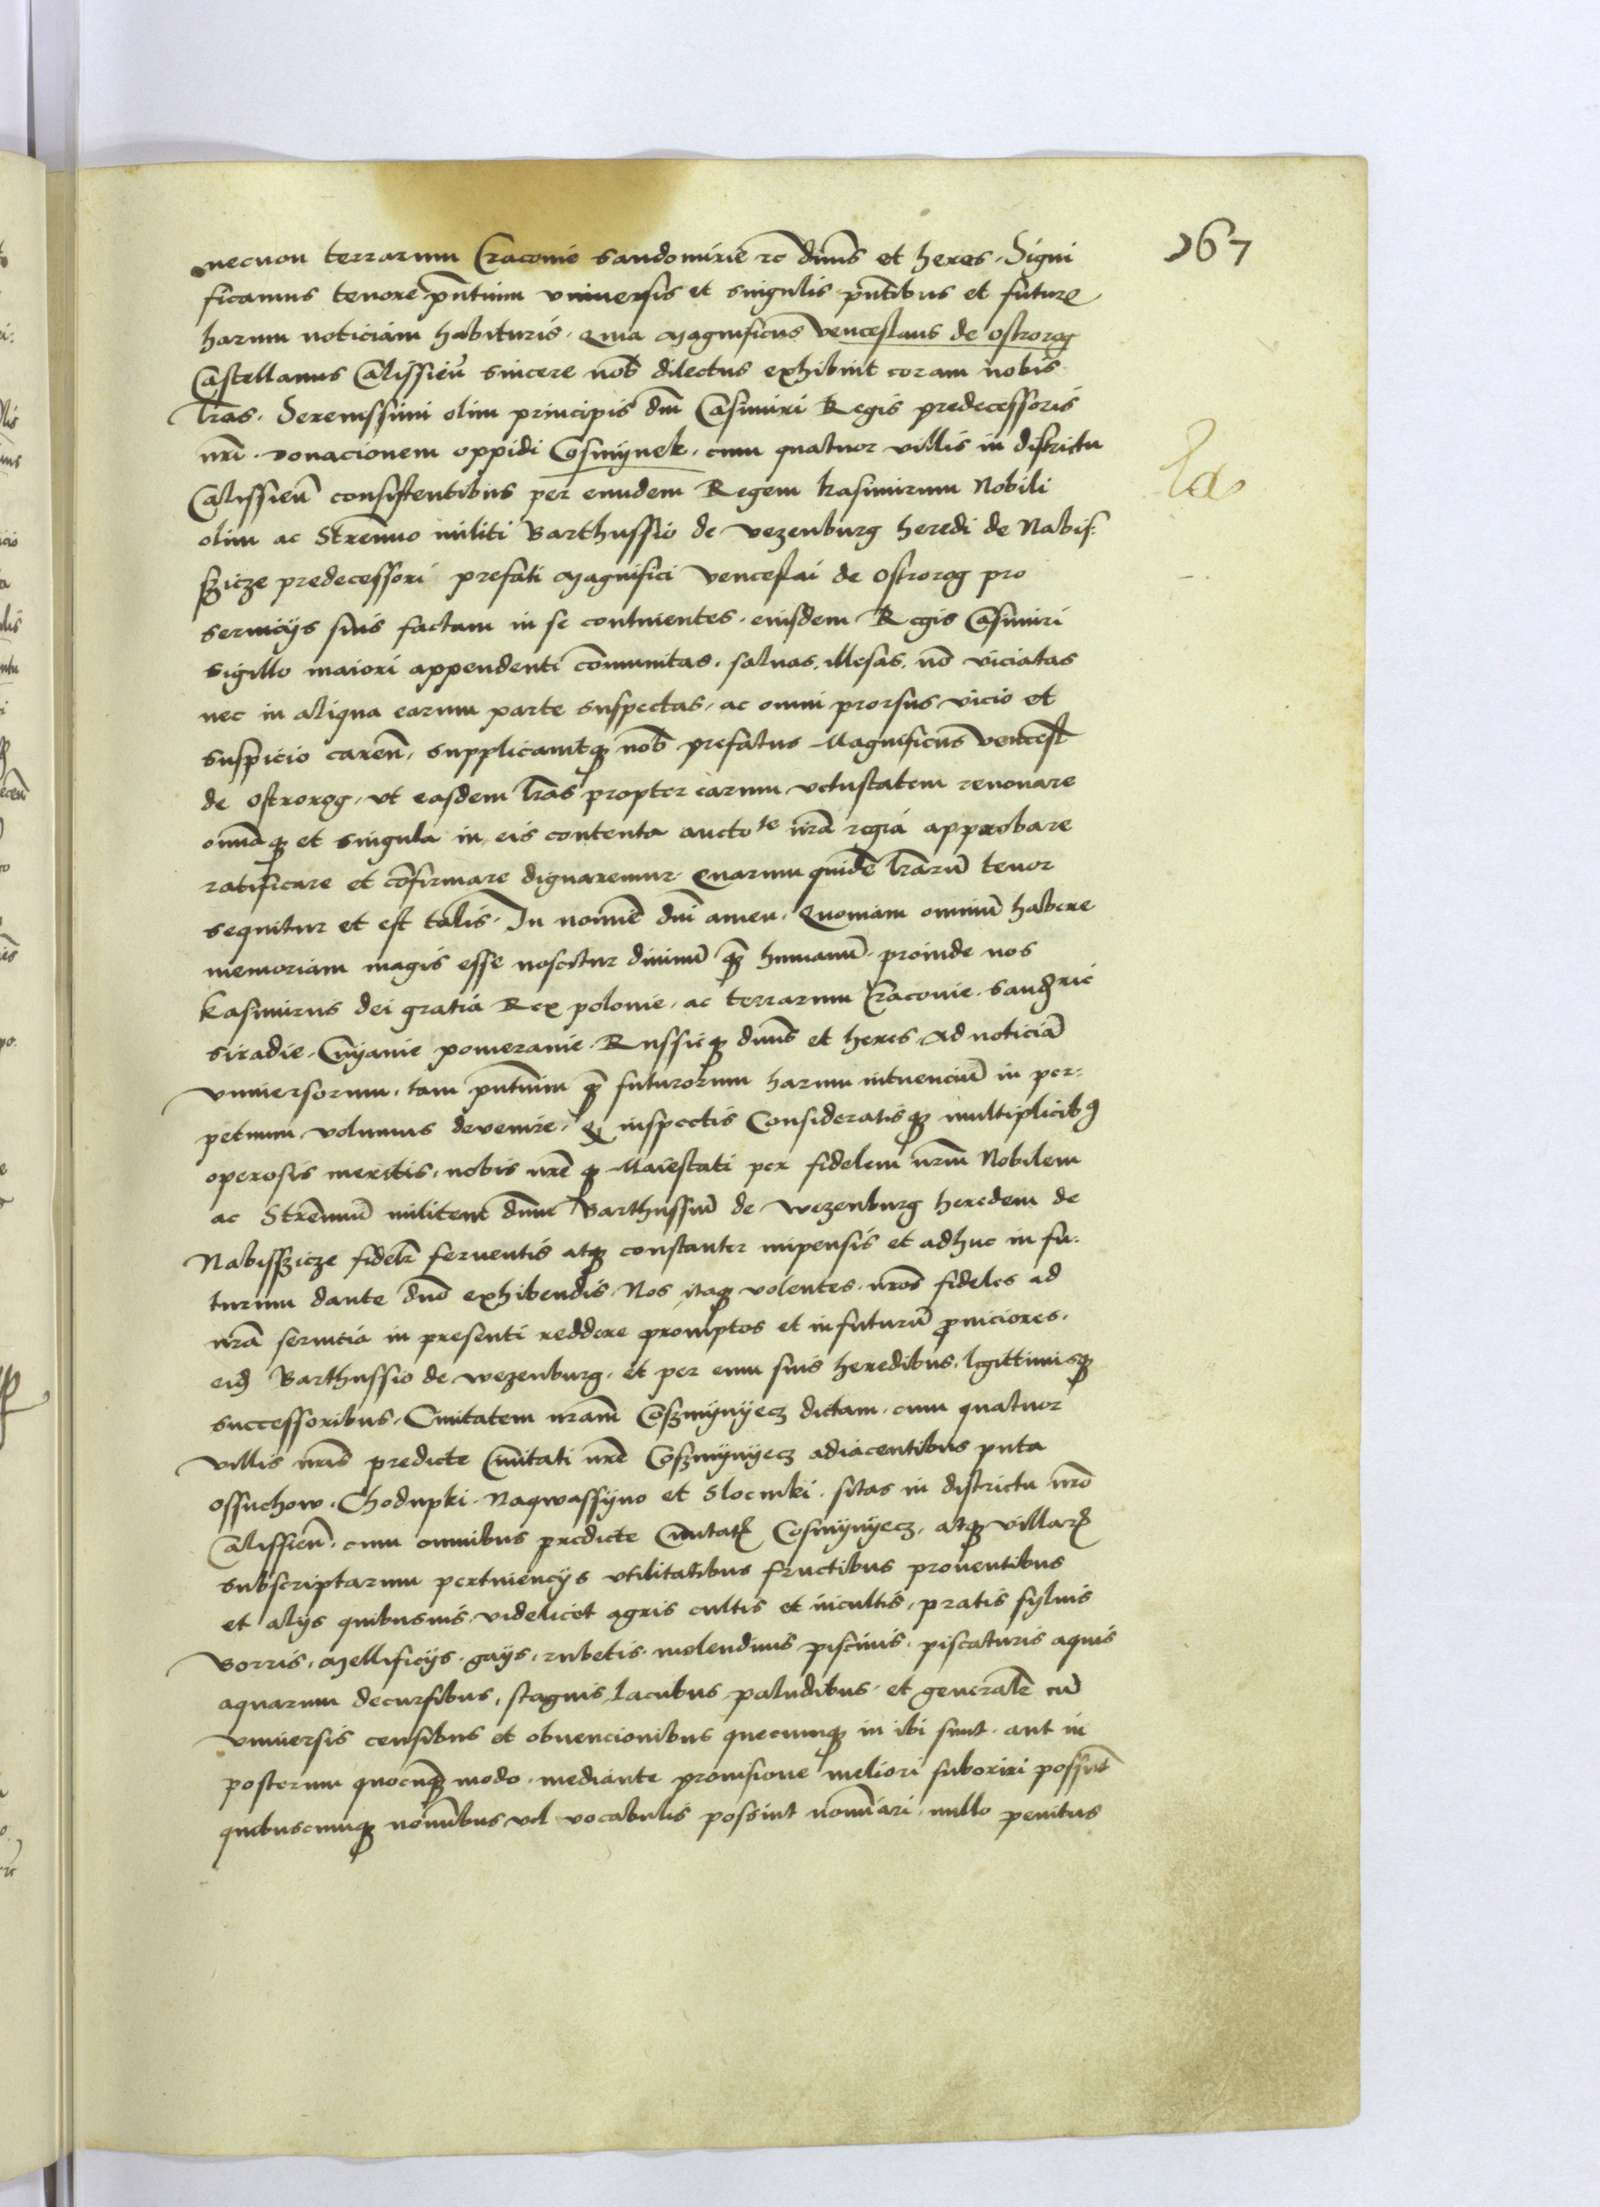 167
necnon terrarum Cracovie Sandomirie rc dnūs et heres. Signi
ficamus tenore pn̄tium vniversis et singulis pn̄tibus et future
harum noticiam habituris. Quia Magnificus Venceslaus de Ostrorog
Castellanus Calissieñ sincere nob̄ dilectus exhibuit coram nobis
lrās. Serenissimi olim principis dnī Casimiri Regis predecessoris
nrī. donacionem oppidi Cosmynek. cum quatuor villis in districtu
Calissieñ consistentibus per eundem Regem kasimirum Nobili
olim ac Strennuo militi Barthussio de Vezenburg heredi de Nabis:
szicze predecessori prefati Magnifici Venceslai de Ostrorog pro
serviciys suis factam in se continentes. eiusdem Regis Casimiri
sigillo maiori appendenti cōmunitas. salvas. illesas. nō viciatas
nec in aliqua earum parte suspectas. ac omni prorsus vicio et
suspicio careñ. supplicavitq nob̄ prefatus Magnificus Vencesl̄
de Ostrorog. vt easdem lrās propter earum vetustatem renovare
omāq et singula in eis contenta auctote nrā regia approbare
ratificare et cōfirmare dignaremur. Quarum quidē lrārū tenor
sequitur et est talis. In nomīe dnī amen. Quoniam omniū habere
memoriam magis esse noscitur divinū q̄ humanū. proinde nos
Kasimirus dei gratia Rex polonie. ac terrarum Cracovie. Sandrie
siradie. Cuyavie pomeranie. Russieq dnūs et heres. Ad noticiā
vniversorum. tam pn̄tium q̄ futurorum harum intuenciū in per:
petuum volumus devenire. Q inspectis Consideratisq multiplicib9
operosis meritis. nobis nrē q Maiestati per fidelem nrūm Nobilem
ac Strennuū militem dnūm Barthussiū de Wezenburg heredem de
Nabisszicze fidelr̄ ferventis atq constanter impensis et adhuc in fu:
turum dante dnō exhibendis. Nos itaq volentes. nrōs fideles ad
nrā servitia in presenti reddere promptos et in futurū proniciores.
eid Barthussio de Wezenburg. et per eum suis heredibus. legittimisq
successoribus. Civitatem nrām Coszmynyecz dictam. cum quatuor
villis nrīs predicte Civitati nrē Coszmynyecz adiacentibus puta
Ossuchow. Chodupki. Naqwassyno et Slocmki. sitas in districtu nrō
Calissieñ. cum omnibus predicte Civitatꝭ Cosmynyecz. atq villarꝝ
subscriptarum pertinencys vtilitatibus fructibus proventibus
et alys quibusvis. videlicet agris cultis et incultis. pratis sylvis
Borris. Mellificys. gays. rubetis. molendinis piscinis. piscaturis aquis
aquarum decursibus. stagnis lacubus paludibus. et generalē cū
vniversis censibus et obvencionibus quecumq in ibi sunt. aut in
posterum quocūq modo. mediante provisione meliori suboriri possūt
quibuscumq nomībus vel vocabulis possint nomīari. nullo penitus